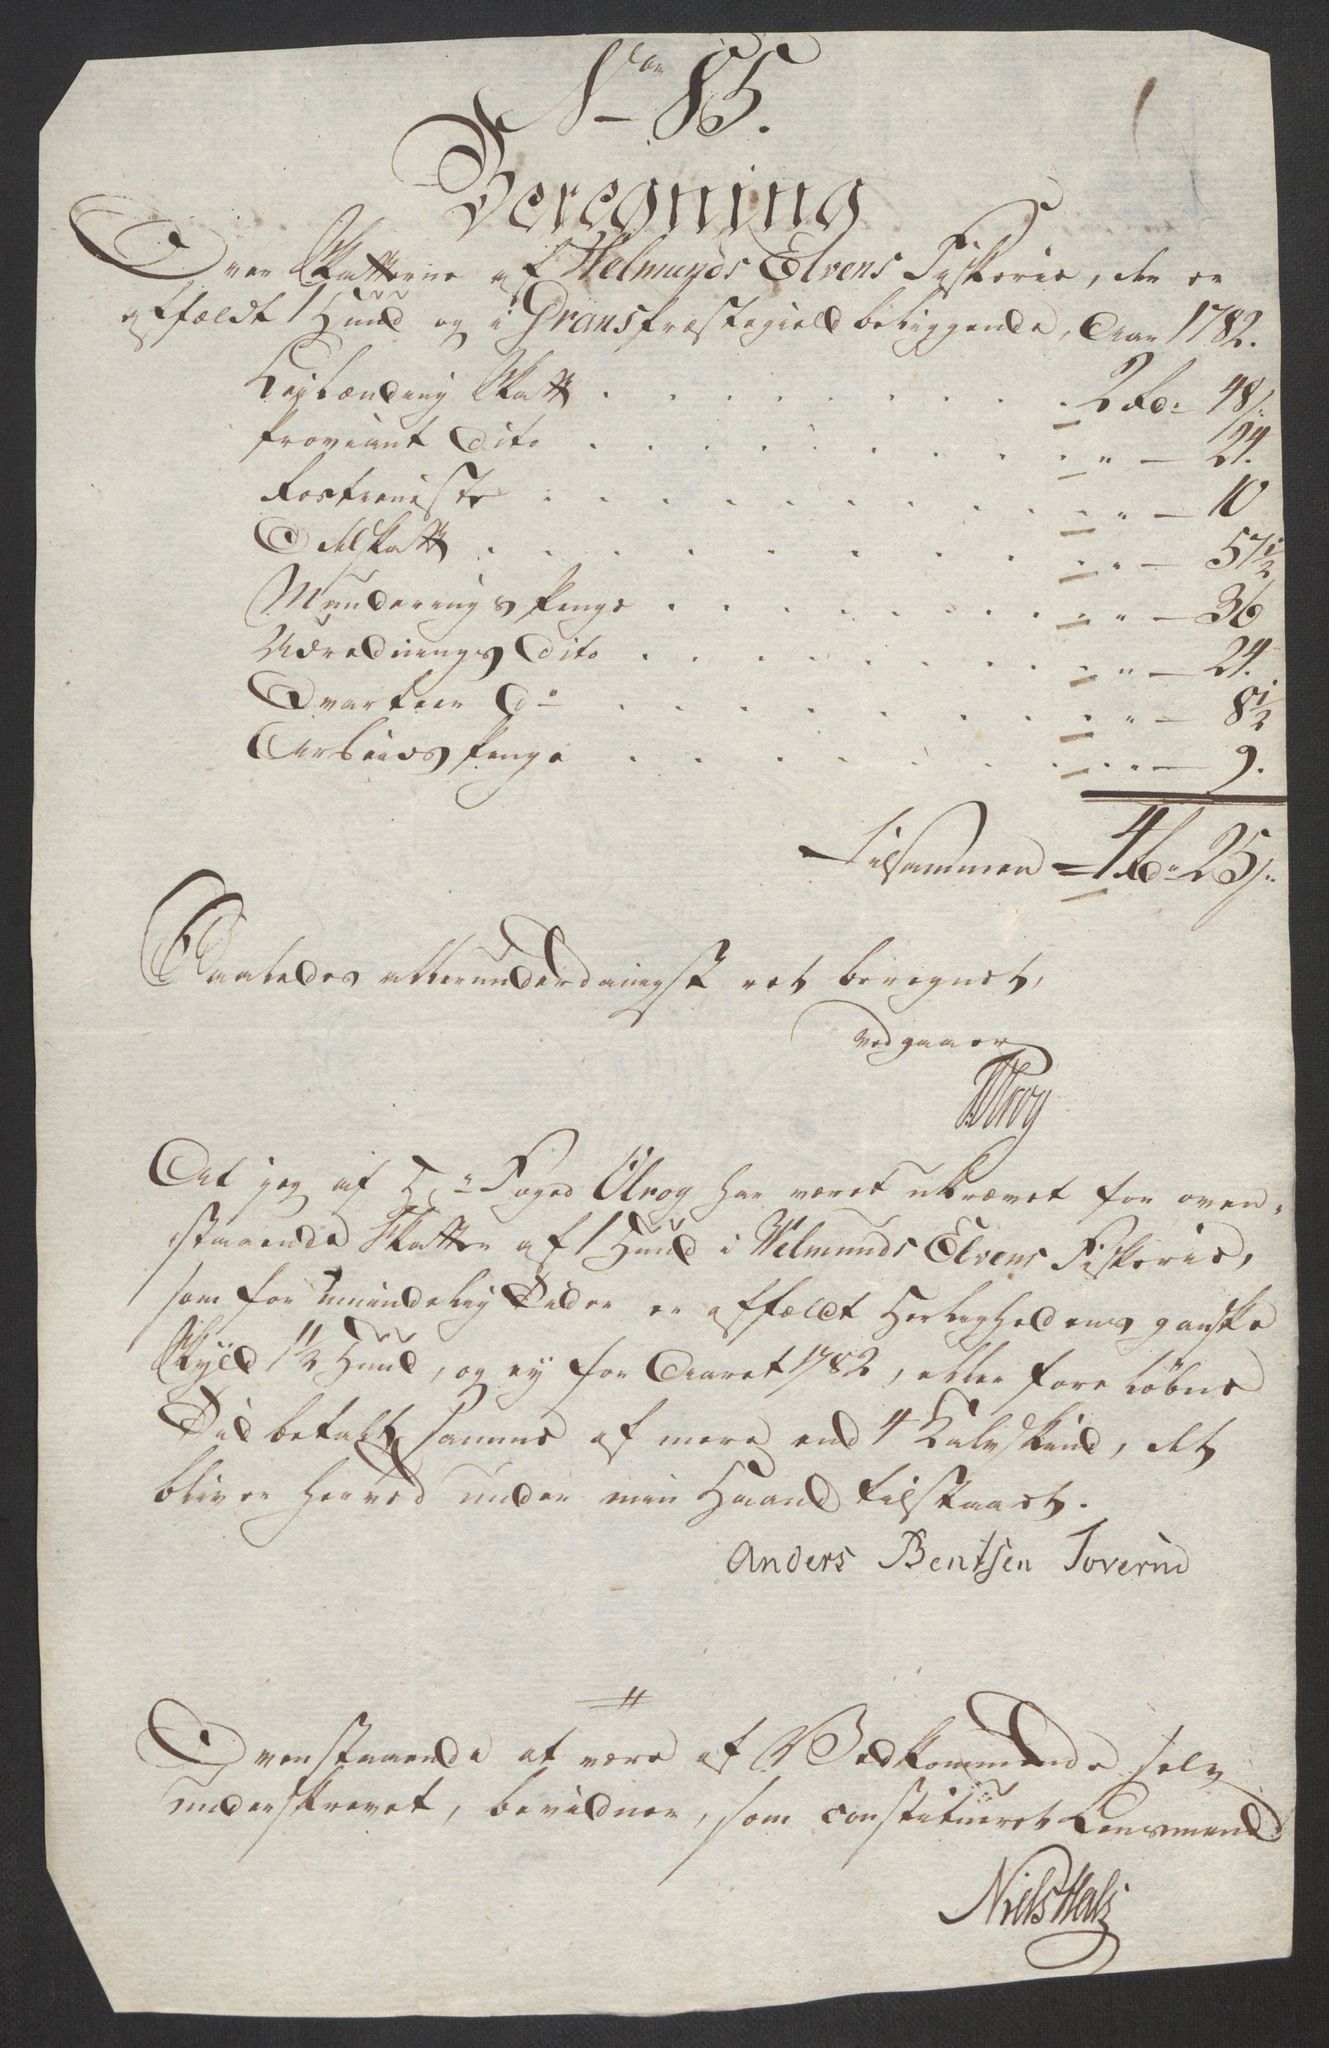 No 85.
Beregning
Over Skatterne af Velmunds Elvens Fiskerie, der er
affældt 1 Hud og i Grans Præstegield beliggende, Aar 1782.
Leylænding Skatt . . . 2 Rd: 48 s:
Proviant Dito . . . " — 24.
Rostieniste . . . " — 10
Odelskatt . . . " — 57½
Munderings Penge . . . " — 36
Udrednings Dito . . . " — 24.
Qvarteer Do . . . " — 8½
Arbeids Penge . . . " — 9.
Tilsammen = 4 Rd: 25 s:
Saaledes allerunderdanigst ret beregnet,
vedgaaer
Ulrog
At jeg af Hr: Foged Ulrog har været ukrævet for oven-
staaende Skatter af 1 Hud i Velmunds Elvens Fiskerie,
som for mindelig Tider er affældt Herlighedens ganske
Skyld 1½ Hud, og ey for Aaret 1782, eller forreløbne
Tid betalt samme af mere end 4 Kalvskind, det
bliver herved under min Haand tilstaaet.
Anders Bentsen Toverud
Ovenstaaende at være af Vedkommende selv
underskrevet, bevidner, som constitueret Lensmand
Niels Hals